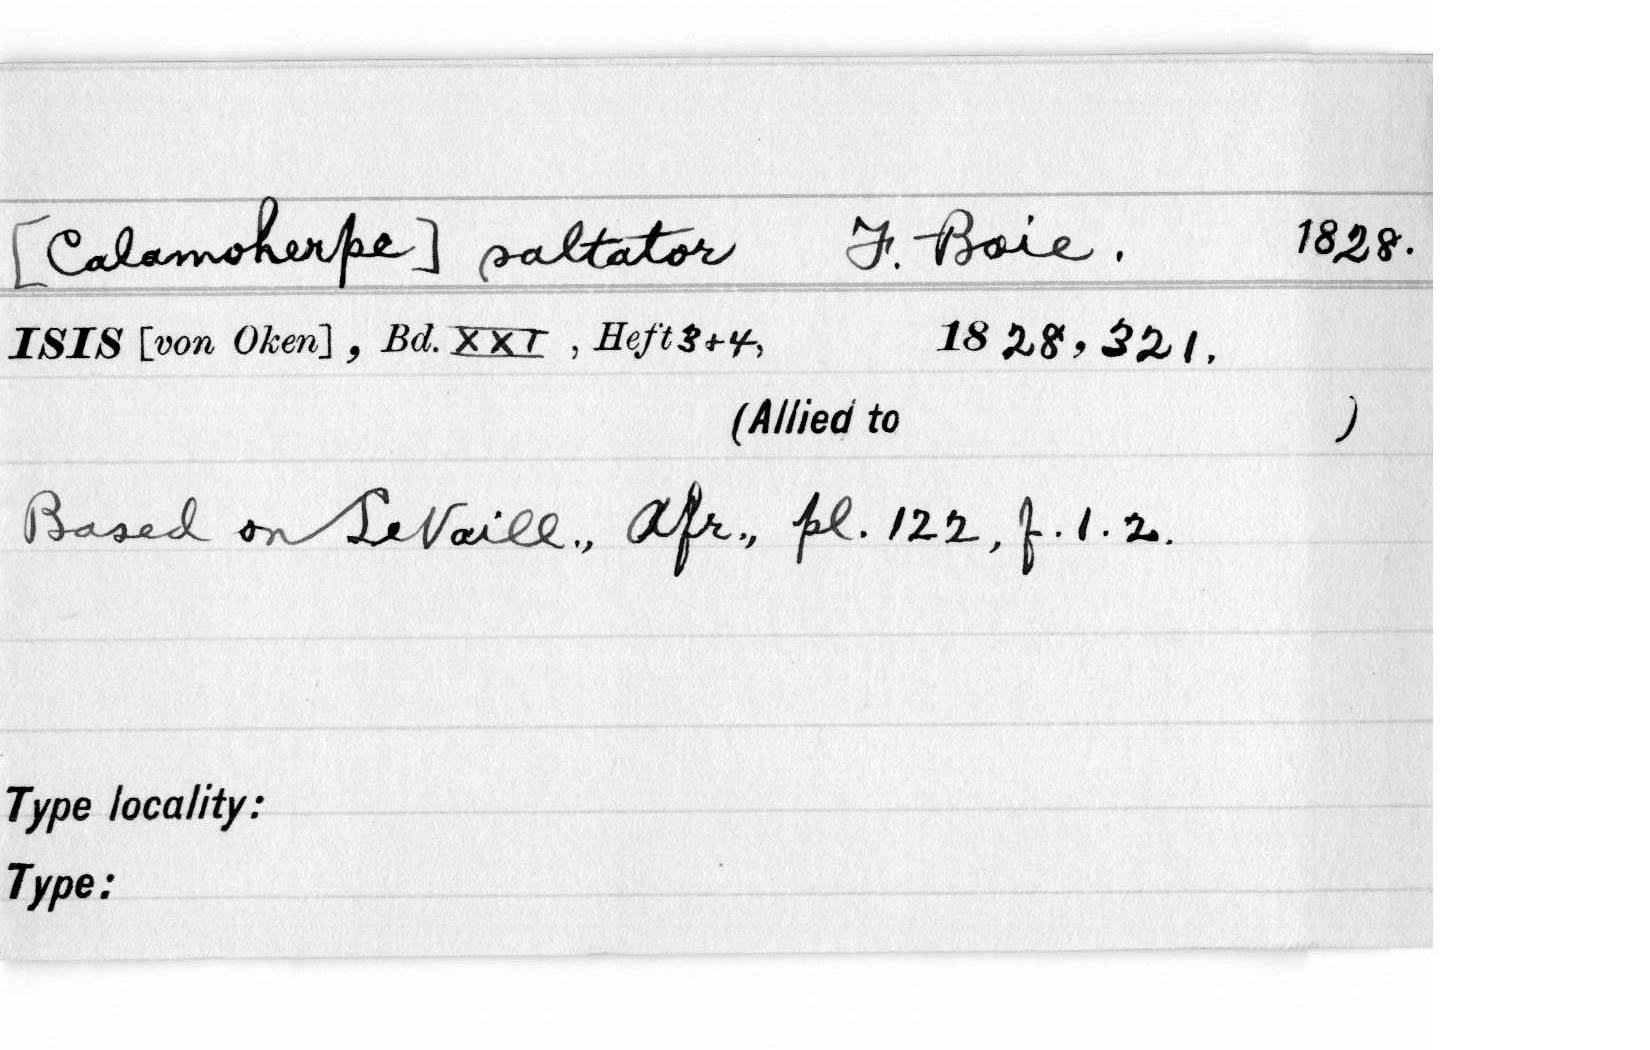 [Calamoherpe] saltator F. Boie. 1828.
ISIS [von Oken], Bd. XXI, Heft 3+4, 1828, 321.
(Allied to )
Based on LeVaill., Afr., pl. 122, f. 1. 2.
Type locality:
Type: